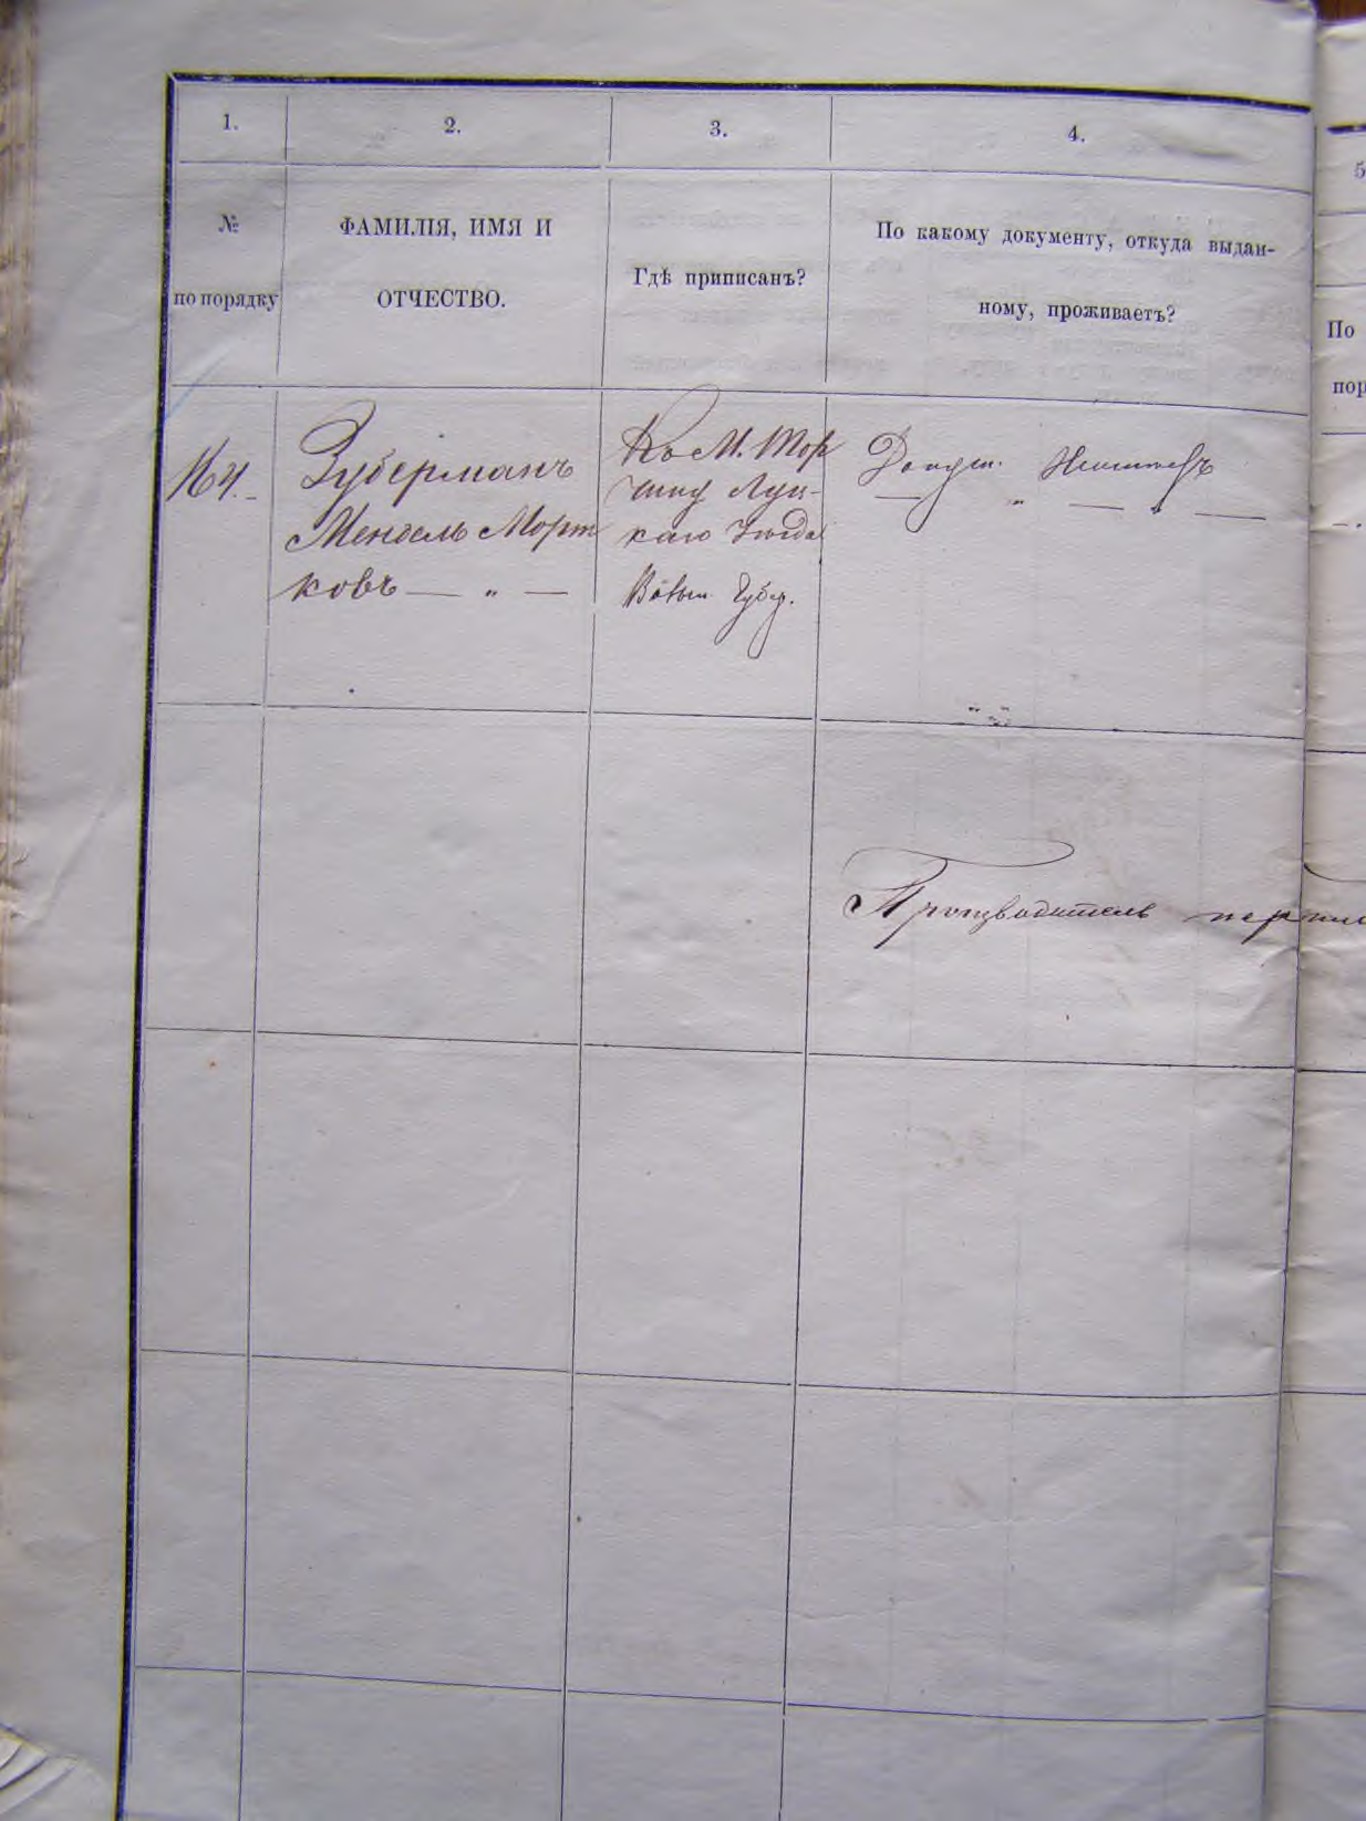 1.
2.
3.
4.
5
№
по порядку
ФАМИЛІЯ, ИМЯ И
ОТЧЕСТВО.
Гдѣ приписанъ?
По какому документу, откуда выдан-
ному, проживаетъ?
По
пор
164.
Зуберманъ
Мендель Морт
ковъ — „ —
Къ М. Тор
чину Луц-
каго Уѣзда
Губер.
Производитель